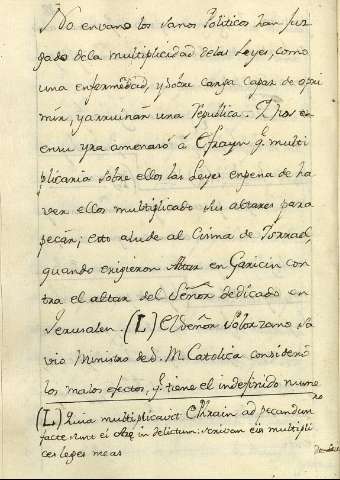 No en vano los sanos Politicos han juz
gado de la multiplicidad de las Leyes, como
una enfermedad, y sobre carga capaz de opri
mir, y arruinar una Republica. Dios en
en su yra amenazó á Efrayn q. multi
plicaria sobre ellos las Leyes en pena de ha
ver ellos multiplicado sus altares para
pecar; esto alude al Cisma de Isrrael,
quando erigieron Altar en Garicin con
tra el altar del Señor dedicado en
Jerusalen. (L) El Señor Solorzano Sa
vio Ministro de S. M. Catolica consideró
los malos efectos, q. tiene el indefinido nume
(L) Quia multiplicavit Efrain ad pecandum
facte sunt ei Aræ in delictum: scrivan eis multipli
ces leges meas